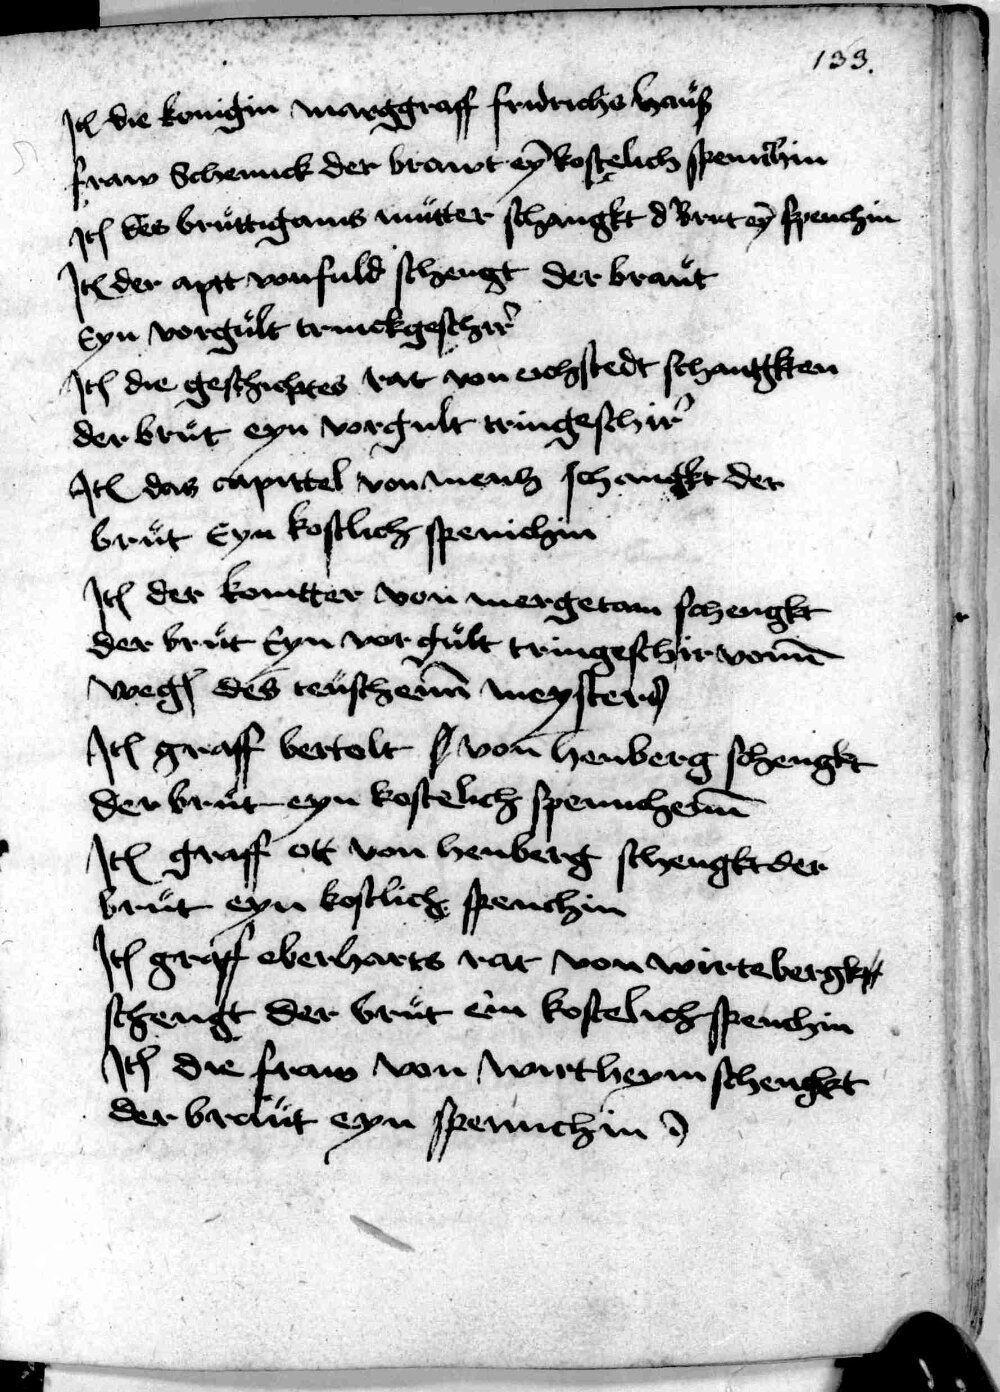 133.
Itꝭ die konigin marggraff fridrichs hauß
fraw Schennck der brawt eyn̄ kostelich spennchin
Itꝭ des bruttigams můtter schangkt d' Brut eȳ spenchin
Itꝭ der aptt von fuld schengt der braůt
Eyn vorgůlt trinckgeschirr
Itꝭ die geschichtes rat von eichstedt schanngkten
der brůt eyn vorgult tringeschirr
Itꝭ das capittel von mentz schangkt der
brůt Eyn kostlich spenichin
Itꝭ der komtter von mergetam schengkt
der brůt Eyn vorgůlt tringeschir vonn̄
wegꝭ des teuschenn̄ meysters
Itꝭ graff bertolt von henberg schengkt
der brůt eyn kostelich spennchein̄
Itꝭ graff ott von henberg schengkt der
brůt eyn kostlich spenchin
Itꝭ graff eberharts rat von wirtebergk
schengt der brůt ein kostelich spenchin
Itꝭ die fraw von wirtheym schengkt
der braůt eyn spennchin